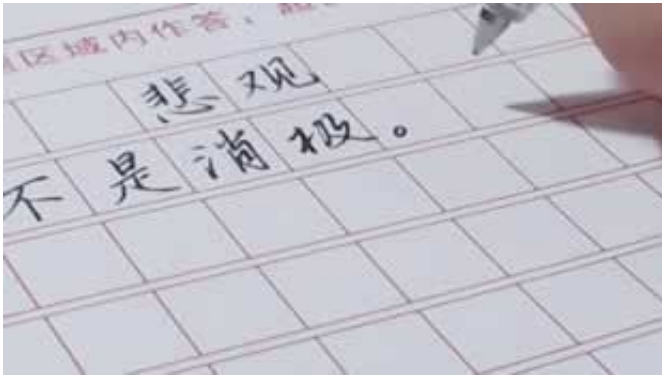 区域内作答，超
悲观
不是消极。